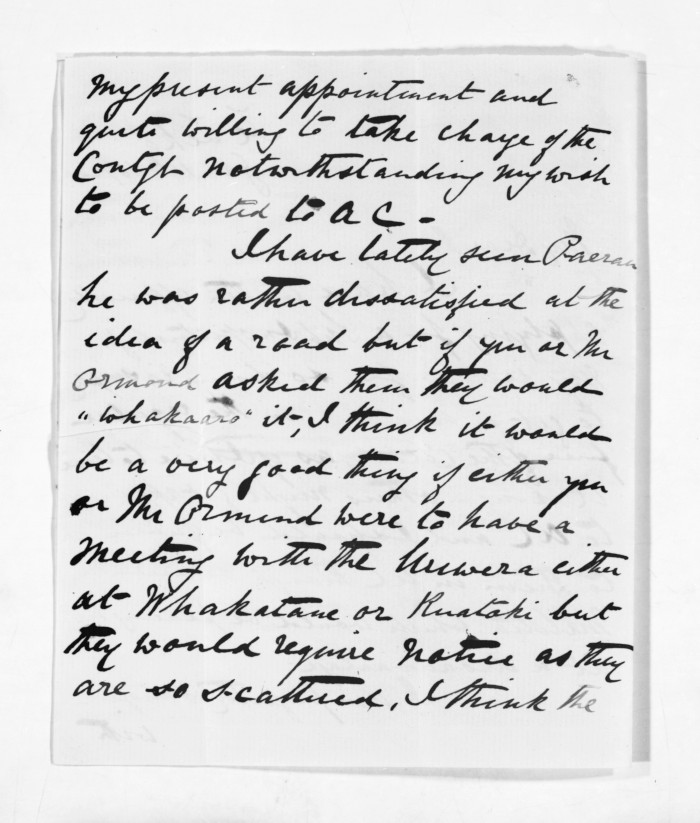 my present appointment and
quite willing to take charge of the
Contgt notwithstanding my wish
to be posted to A C -
I have lately seen Paerau
he was rather dissatisfied at the
idea of a road but if you or Mr
Ormond asked them they would
"whakaaro" it, I think it would
be a very good thing if either you
or Mr Ormond were to have a
meeting with the Urewera either
at Whakatane or Ruatoki but
they would require notice as they
are so scattered, I think the